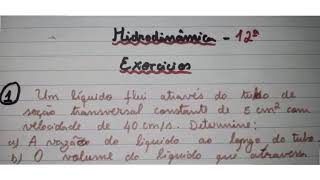 Hidrodinâmica - 12ª
Exercícios
1 Um líquido flui através do tubo de
seção transversal constante de 5 cm² com
velocidade de 40 cm/s. Determine:
a) A vazão do líquido ao longo do tubo.
b) O volume do líquido que atravessa